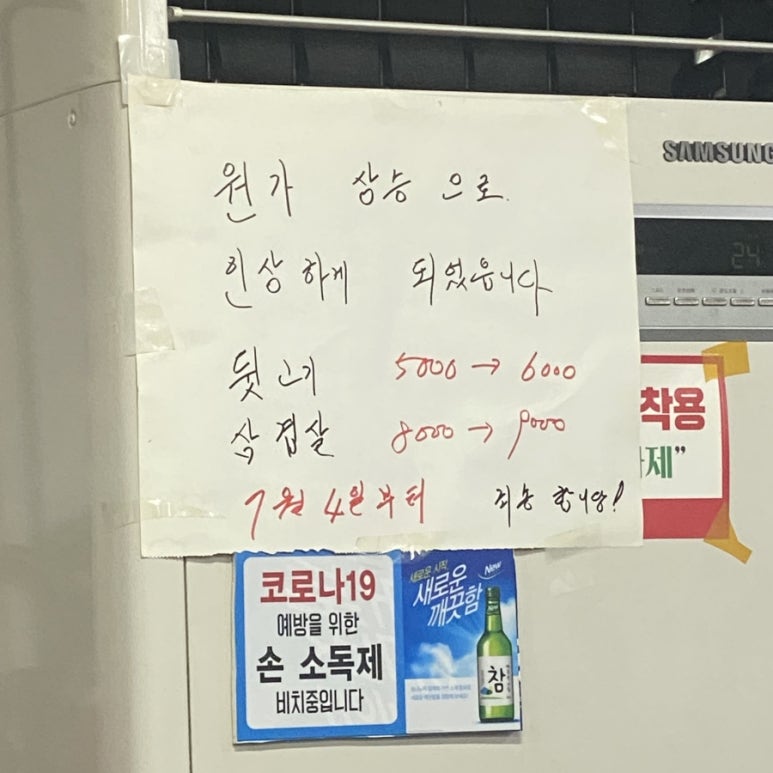 원가 상승 으로.
인상하게 되었읍니다
뒷고기 5000 → 6000
삼겹살 8000 → 9000
7월 4일부터 죄송합니다!
SAMSUNG
24
착용
제”
코로나19
예방을 위한
손 소독제
비치중입니다
새로운 시작,
New
새로운
깨끗함
참